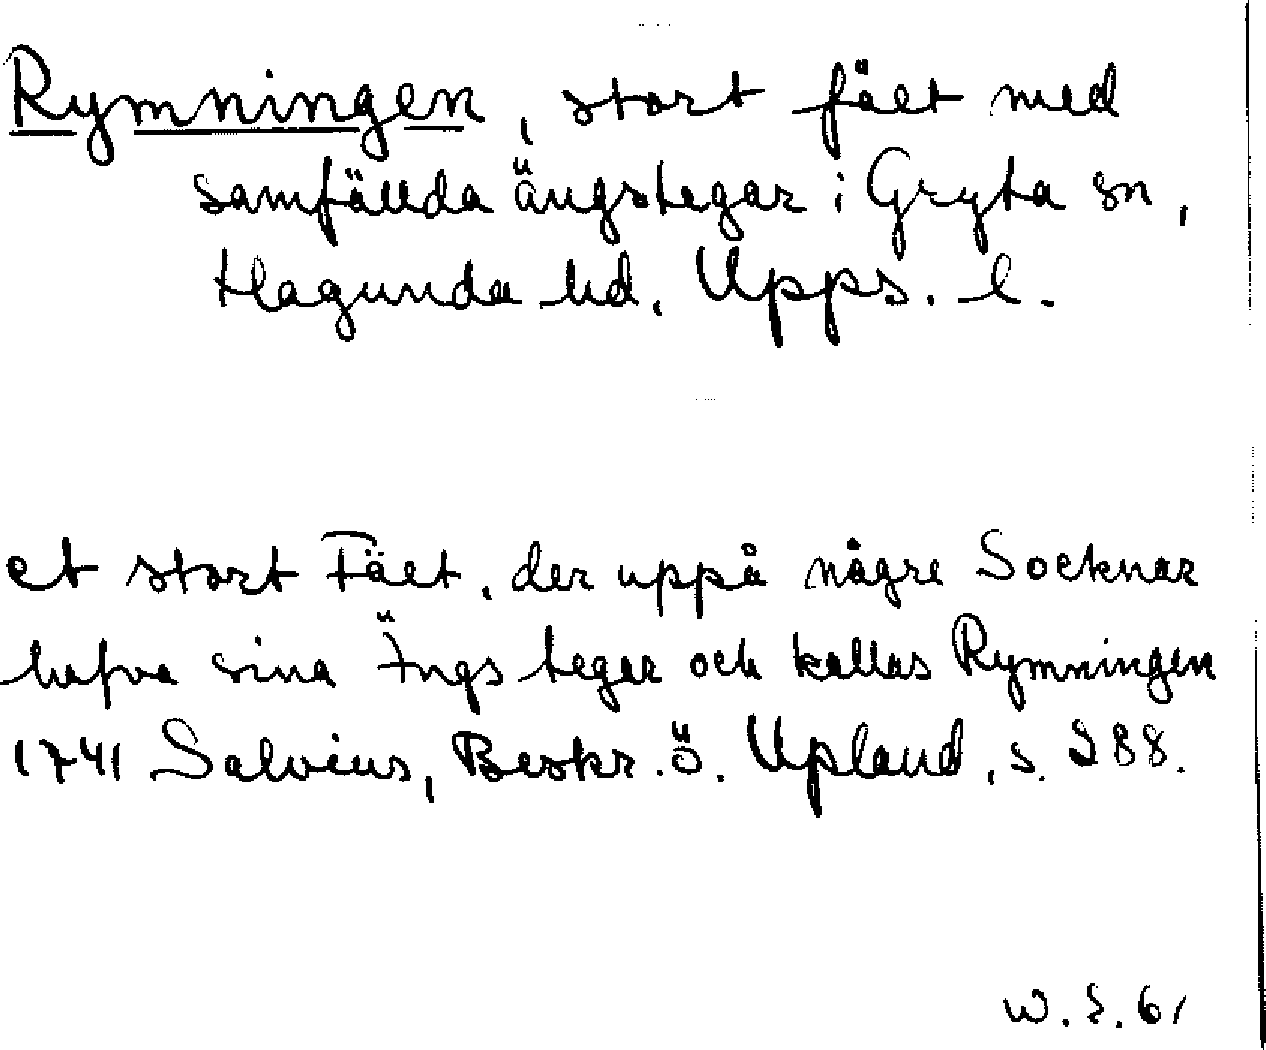 Rymningen, stort fält med
samfällda ängstegar i Gryta sn,
Hagunda hd. Upps. l.
et stort Fält, der uppå någre Socknar
hafva sina Ängs tegar och kallas Rymningen
1741 Salvius, Beskr. ö. Upland, s. 288.
W. S. 61